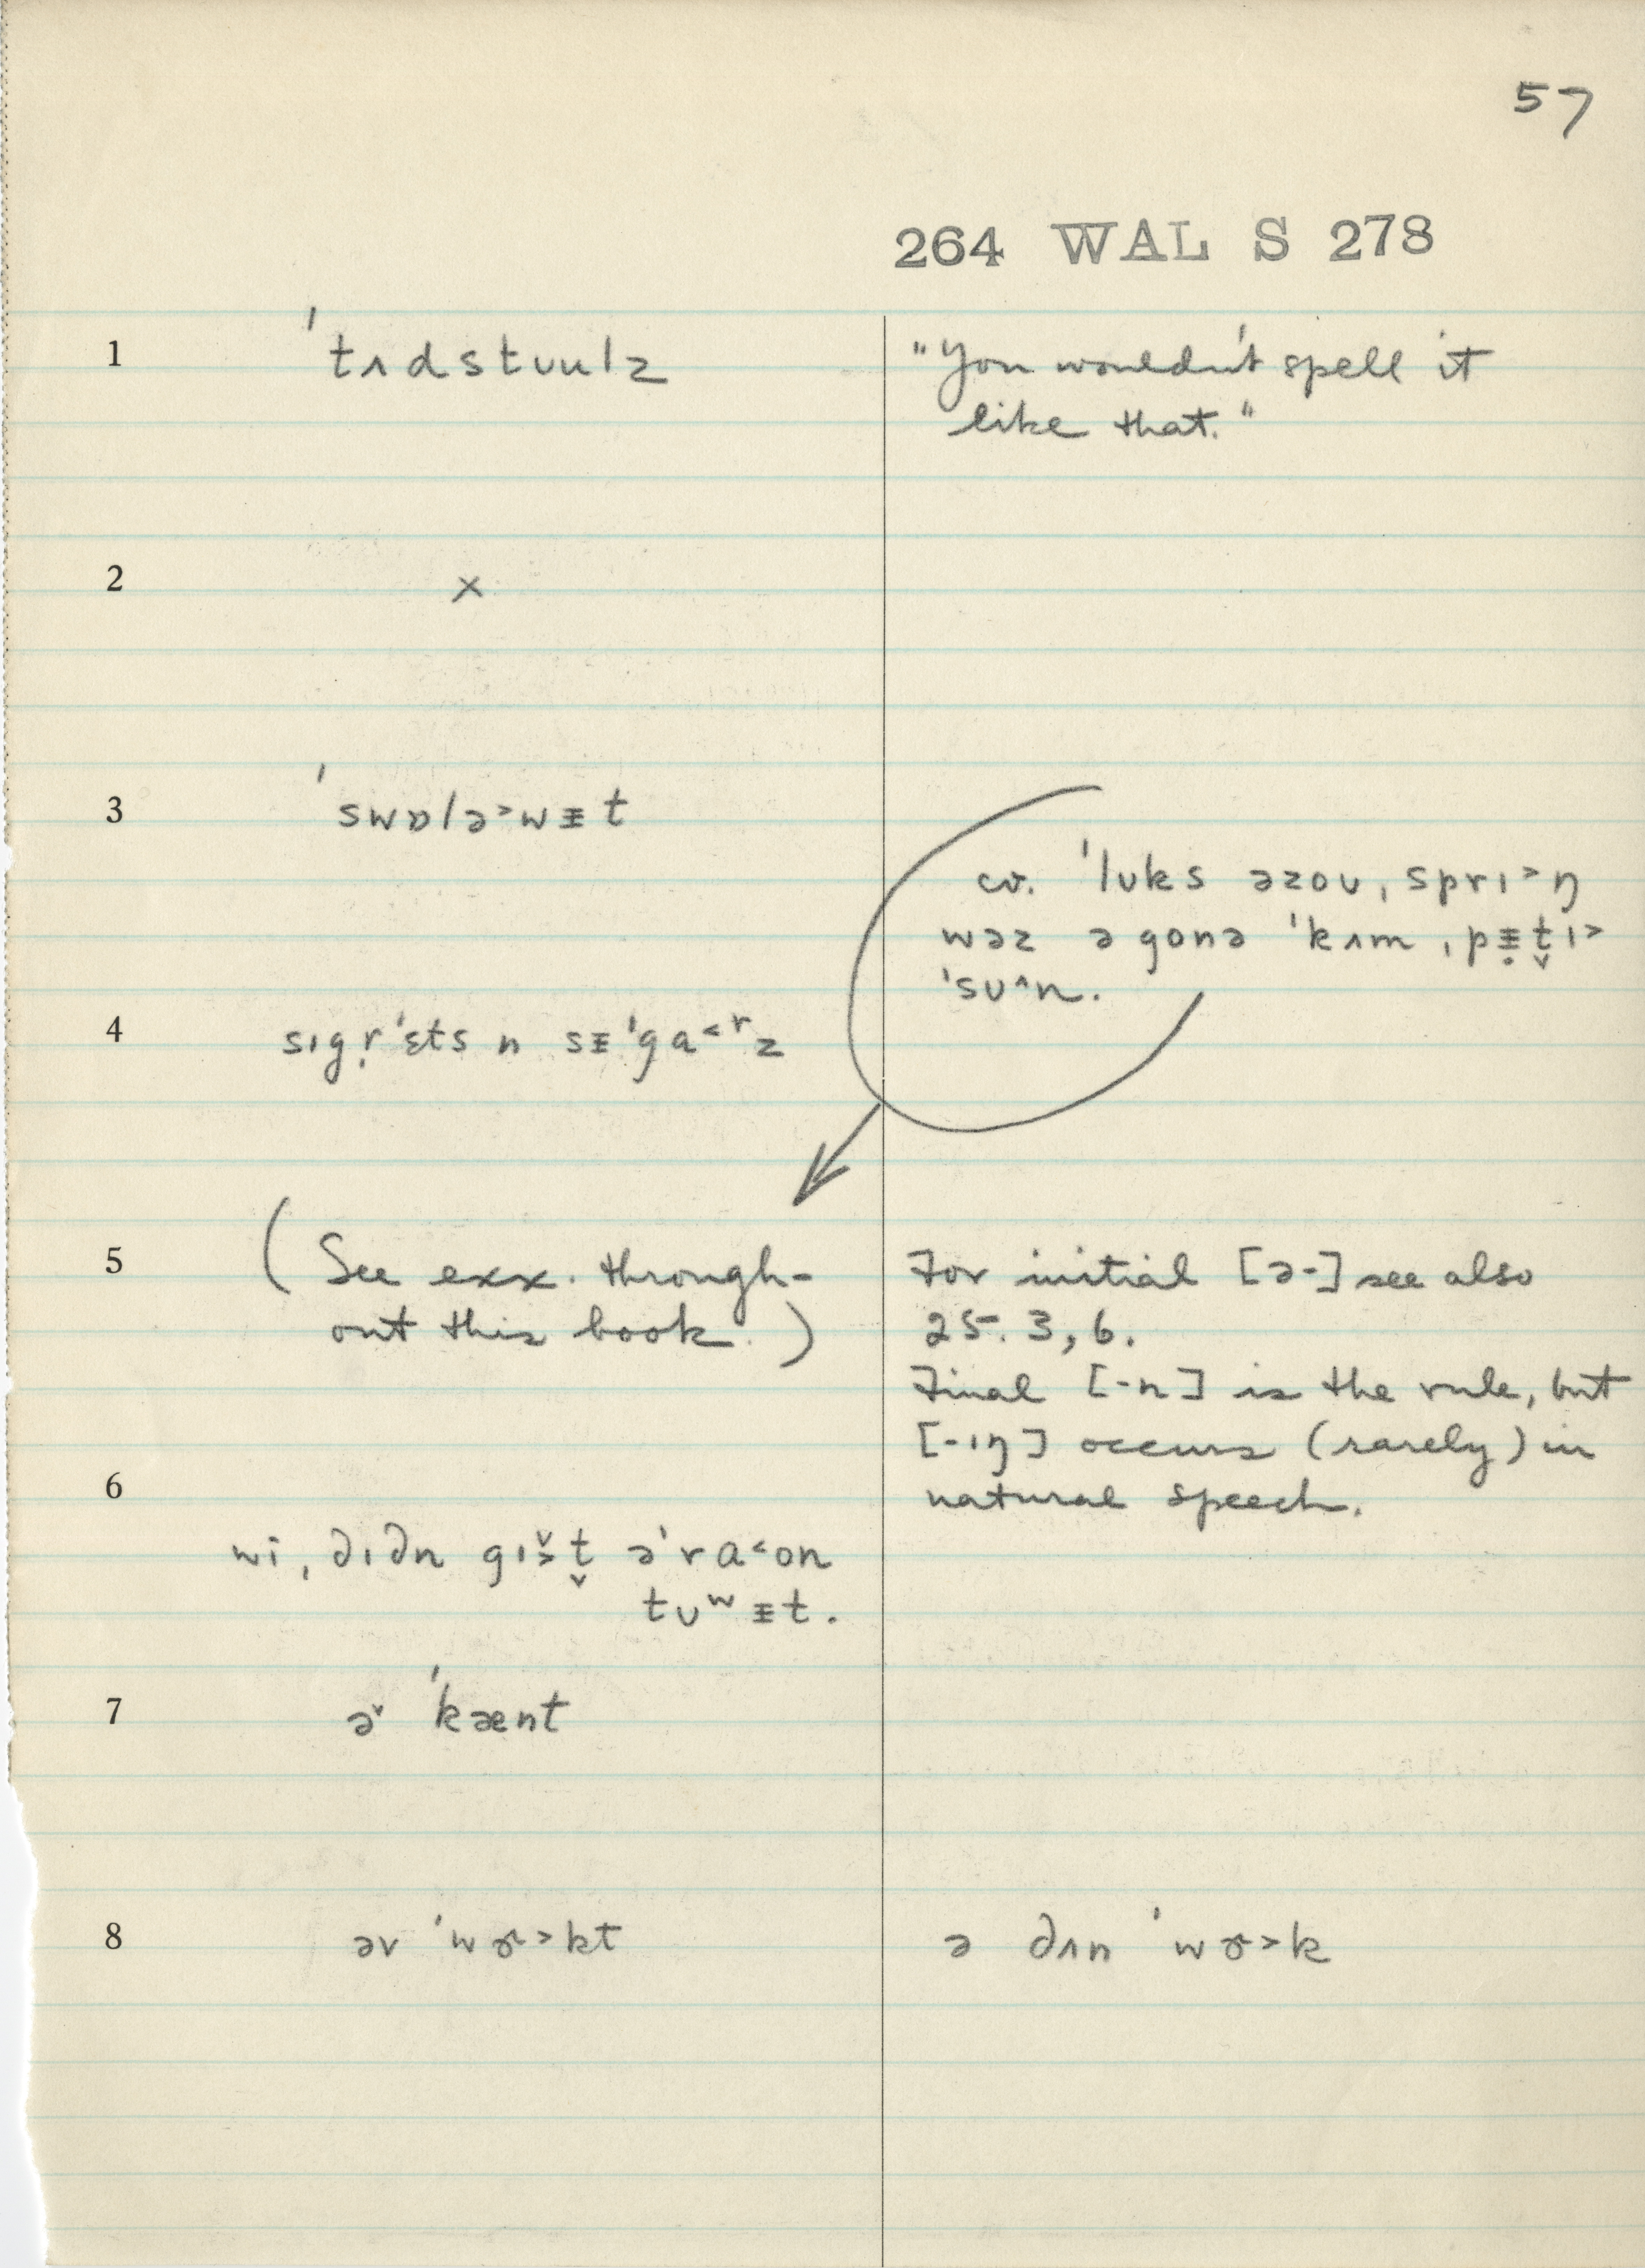 57
264 WAL S 278
1 ˈtʌdstʊulz
"You wouldn't spell it
like that."
2 ×
3 ˈswɒlə˃wᵻt
cv. ˈlʊks əzoʊ, sprɪ˃ŋ
wəz ə gonə ˈkʌm, pᵻ̣t̬ɪ˃
ˈsʊ^n.
4 sɪgṛˈɛts n sᵻˈga˂ʳz
5 (See exx. through-
out this book.)
For initial [ə-] see also
25.3, 6.
Final [-n] is the rule, but
[-ɪŋ] occurs (rarely) in
natural speech.
6
wi, dɪdn gɪ˃̌t̬ əˈra˂on
tʊʷᵻt.
7 əᵛ ˈkænt
8 əv ˈwɚ˃kt
ə dʌn ˈwɚ˃k